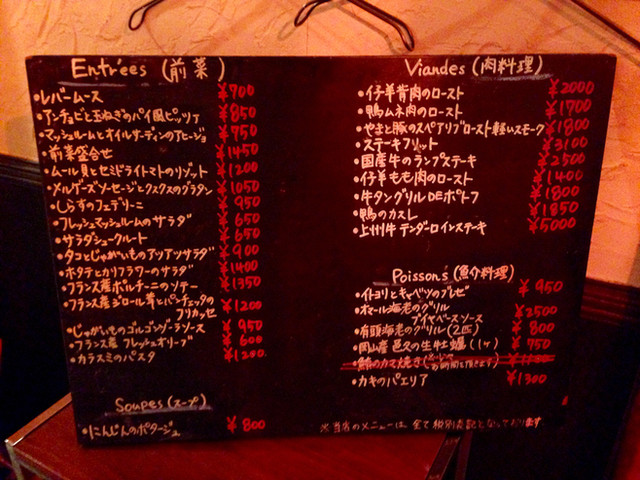 Entrées (前菜)
・レバームース ¥700
・アンチョビと玉ねぎのパイ風ピッツァ ¥850
・マッシュルームとオイルサーディンのアヒージョ ¥750
・前菜盛合せ ¥1450
・ムール貝とセミドライトマトのリゾット ¥1200
・メルゲーズソーセージとクスクスのグラタン ¥1050
・しらすのフェデリーニ ¥950
・フレッシュマッシュルームのサラダ ¥650
・サラダシュークルート ¥650
・タコとじゃがいものアツアツサラダ ¥900
・ホタテとカリフラワーのサラダ ¥1400
・フランス産ポルチーニのソテー ¥1350
・フランス産ジロール茸とパンチェッタの
フリカッセ ¥1200
・じゃがいものゴルゴンゾーラソース ¥950
・フランス産 フレッシュオリーブ ¥600
・カラスミのパスタ ¥1200
Soupes (スープ)
・にんじんのポタージュ ¥800
Viandes (肉料理)
・仔羊背肉のロースト ¥2000
・鴨ムネ肉のロースト ¥1700
・やまと豚のスペアリブロースト軽いスモーク ¥1800
・ステークフリット ¥3100
・国産牛のランプステーキ ¥2500
・仔羊もも肉のロースト ¥1400
・牛タングリル DEポトフ ¥1800
・鴨のカスレ ¥1850
・上州牛 テンダーロインステーキ ¥5000
Poissons (魚介料理)
・イトヨリとキャベツのブレゼ ¥950
・オマール海老のグリル
ブイヤベースソース ¥2500
・有頭海老のグリル(2匹) ¥800
・岡山産 邑久の生牡蠣 (1ヶ) ¥750
のカマ焼き お時間を頂きます
・カキのパエリア ¥1300
※当店のメニューは、全て税別表記となっております